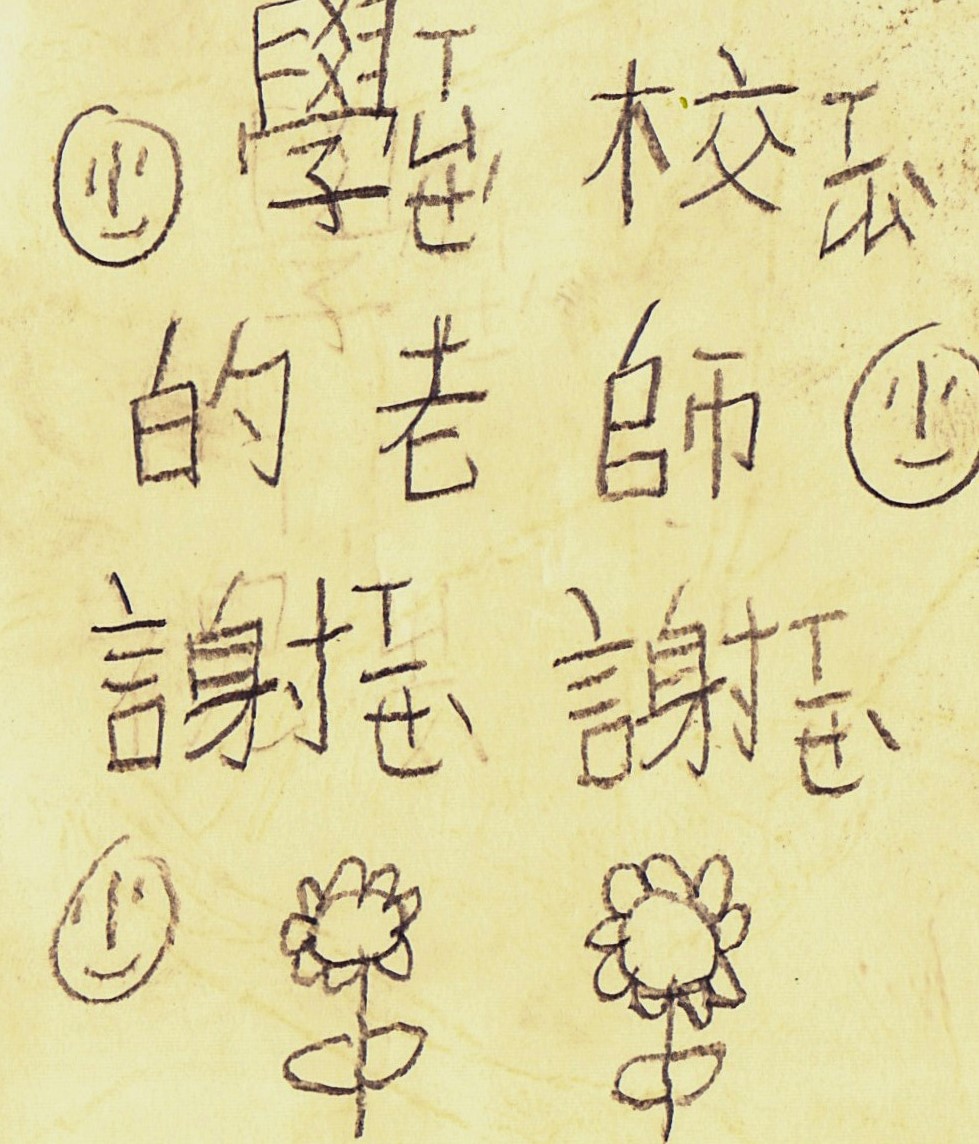 學ㄒㄩㄝˊ 校ㄒㄧㄠˋ
的 老 師
謝ㄒㄧㄝˋ 謝ㄒㄧㄝˋ